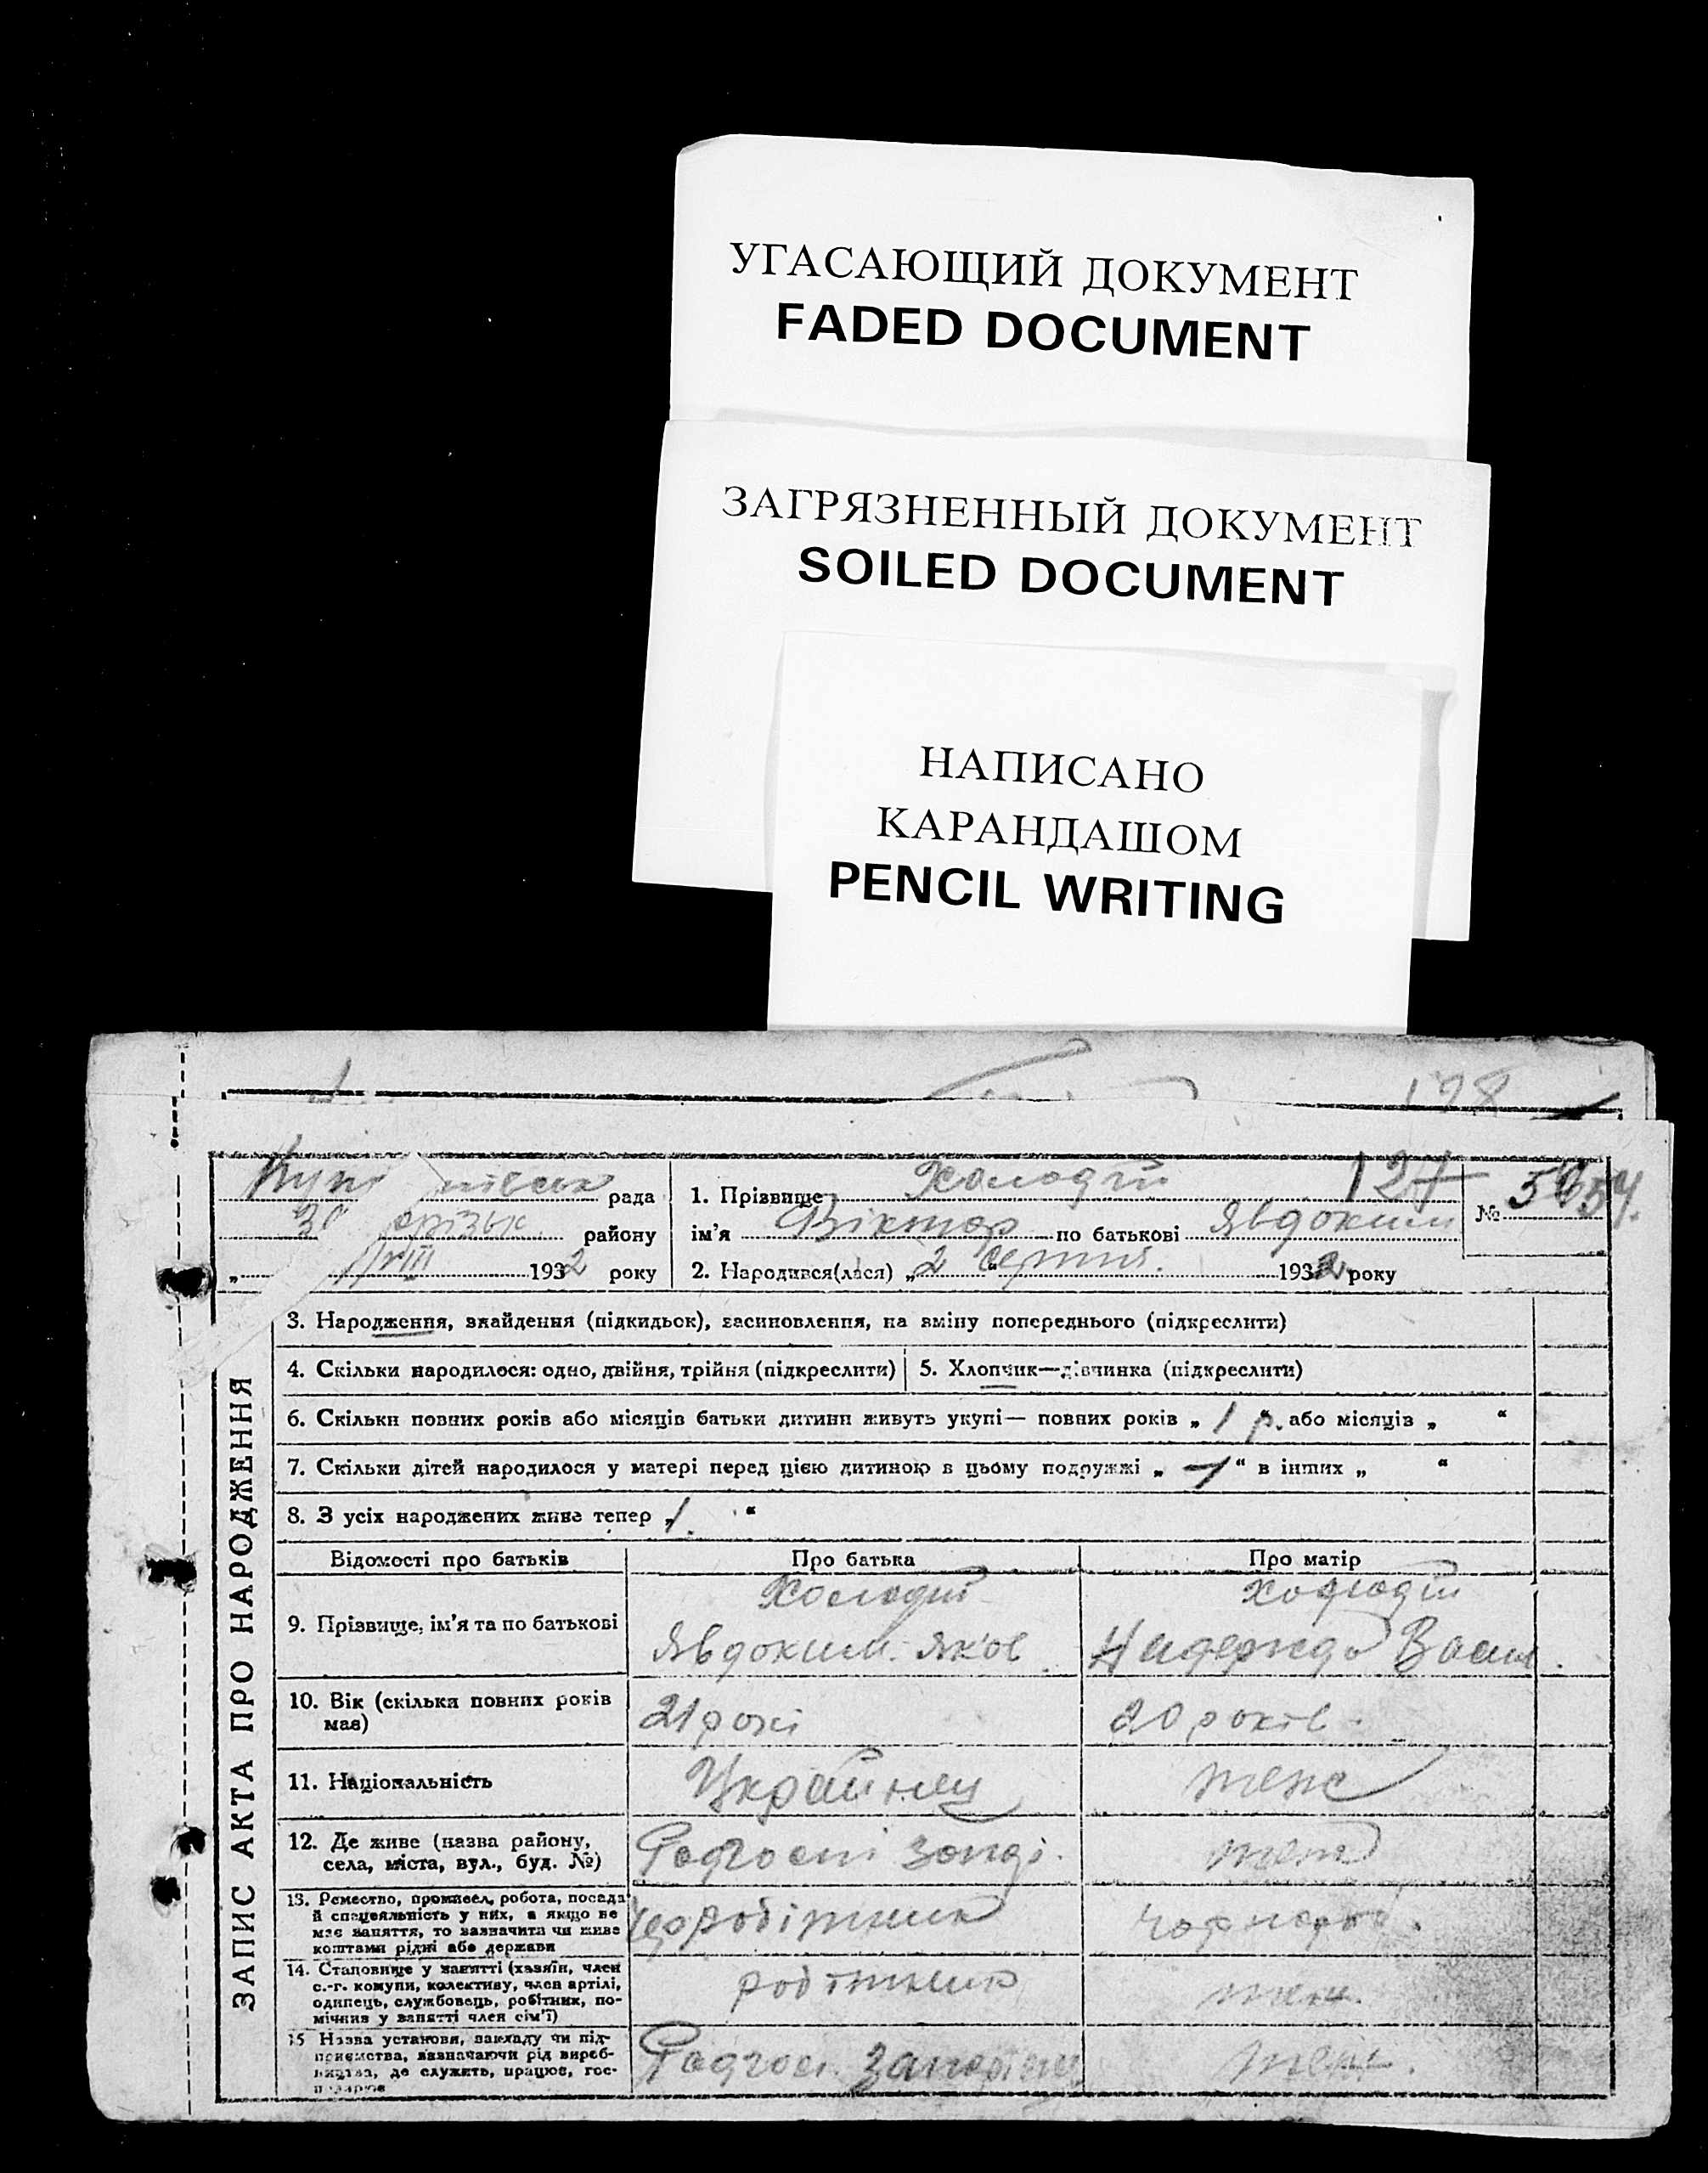 УГАСАЮЩИЙ ДОКУМЕНТ
FADED DOCUMENT
ЗАГРЯЗНЕННЫЙ ДОКУМЕНТ
SOILED DOCUMENT
НАПИСАНО
КАРАНДАШОМ
PENCIL WRITING
198
рада
району
VIII 1932 року
1. Прізвище Холодій 127
ім'я Віктор по батькові Явдоким
2. Народився(лася) „2 серпня. 1932 року
№
ЗАПИС АКТА ПРО НАРОДЖЕННЯ
3. Народження, знайдення (підкидьок), засиновлення, на зміну попереднього (підкреслити)
4. Скільки народилося: одно, двійня, трійня (підкреслити)
5. Хлопчик—дівчинка (підкреслити)
6. Скільки повних років або місяців батьки дитини живуть укупі— повних років „ 1 р. або місяців „ “
7. Скільки дітей народилося у матері перед цією дитиною в цьому подружжі „ — “ в інших „ “
8. З усіх народжених живе тепер „ 1. “
Відомості про батьків
Про батька
Про матір
9. Прізвище, ім'я та по батькові
Холодій
Явдоким. Яков
Холодій
Надежда Васил.
10. Вік (скілька повних років
має)
21 рокі
20 років.
11. Національність
Українец
теж
12. Де живе (назва району,
села, міста, вул., буд. №)
Радгоспі
теж
13. Ремество, промисел, робота, посада
й спеціяльність у них, а якщо не
має заняття, то зазначити чи живе
коштами рідні або держави
чорнороб.
14. Становище у занятті (хазяїн, член
с.-г. комуни, колективу, член артілі,
одинець, службовець, робітник, по-
мічник у занятті член сім'ї)
робітник
теж.
15 Назва установи, закладу чи під-
приємства, зазначаючи рід вироб-
ництва, де служить, працює, гос-
подарює
Радгосп.
теж.